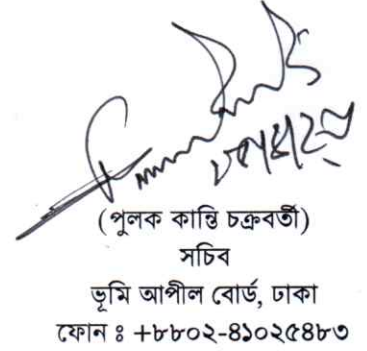 (পুলক কান্তি চক্রবর্তী)
সচিব
ভূমি আপীল বোর্ড, ঢাকা
ফোন ঃ +৮৮০২-৪১০২৫৪৮৩